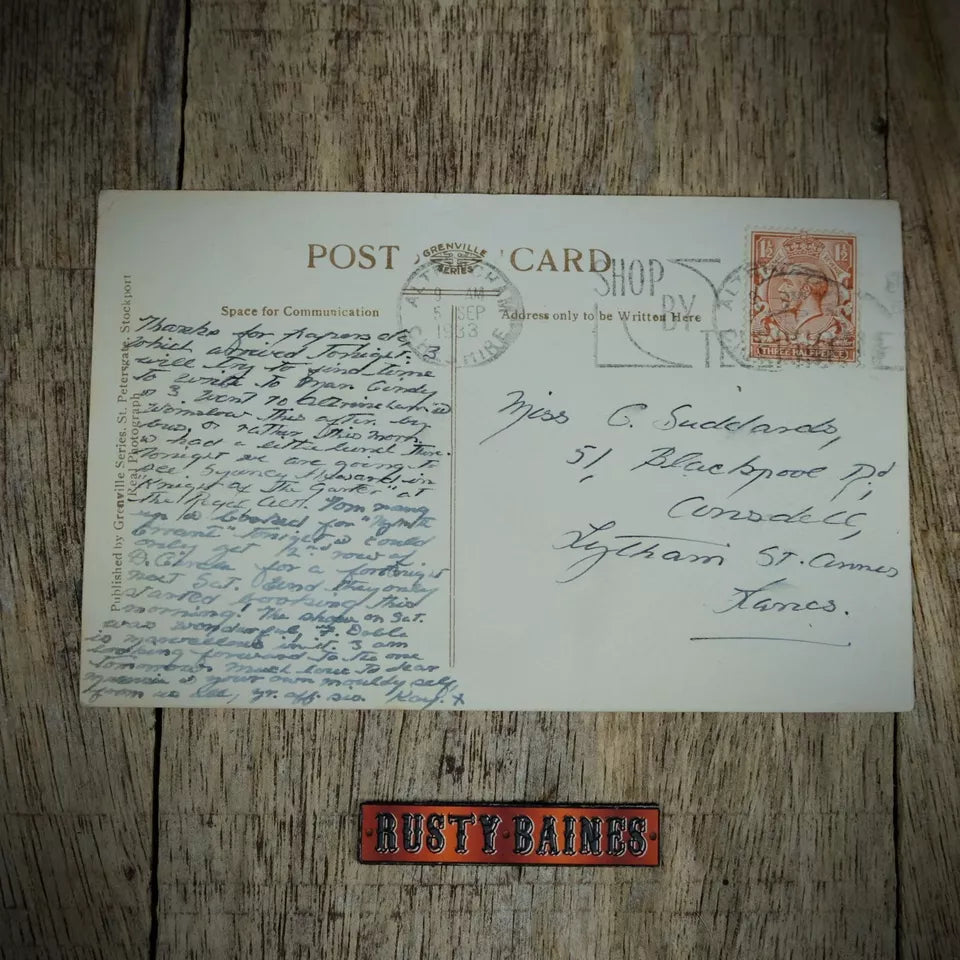 POST CARD
GRENVILLE
SERIES
Space for Communication
Address only to be Written Here
Published by Grenville Series, St. Petersgate, Stockport
(Real Photograph)
9 AM
5 SEP
1933
CHESHIRE
SHOP
BY
1½ 1½
THREE HALFPENCE
Thanks for papers etc,
which arrived tonight. I
will try to find time
to write to
I went to
this after. by
bus, or rather this morn.
& had a little lunch there.
Tonight we are going to
see Sydney Howard in
"Knight of the Garter" at
the Regal, Alt.
up & booked for
tonight & could
only get 2nd row of
D. Circle for a fortnight
next Sat. And they only
started booking this
morning! The show on Sat.
was wonderful,
is marvellous in it. I am
looking forward to the one
tomorrow. Much love to dear
& your own mouldy self,
from us all, yr. aff. sis. Kay. x
Miss C. Suddards,
51, Blackpool Rd,
Ansdell,
Lytham St. Annes
Lancs.
RUSTY BAINES